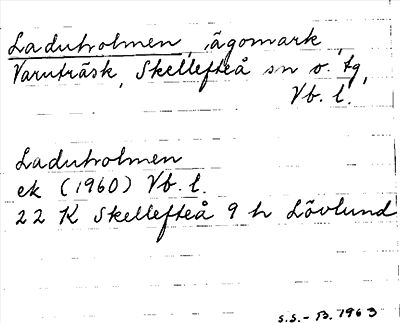 Laduholmen, ägomark,
Varuträsk, Skellefteå sn o. tg,
Vb. l.
Laduholmen
ek (1960) Vb. l.
22 K Skellefteå 9 h Lövlund
S.S.-B. 1963